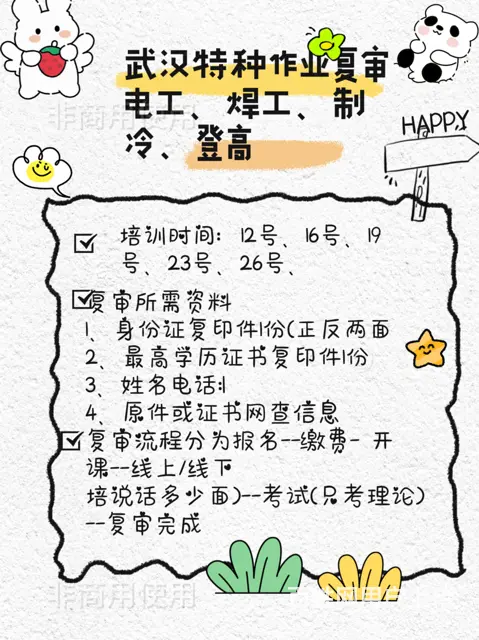 武汉特种作业复审
电工、焊工、制
冷、登高
HAPPY
培训时间：12号、16号、19
号、23号、26号、
复审所需资料
1、身份证复印件1份(正反两面
2、最高学历证书复印件1份
3、姓名电话;
4、原件或证书网查信息
复审流程分为报名--缴费- 开
课--线上/线下
培说话多少面)--考试(只考理论)
--复审完成
非商用使用
非商用使用